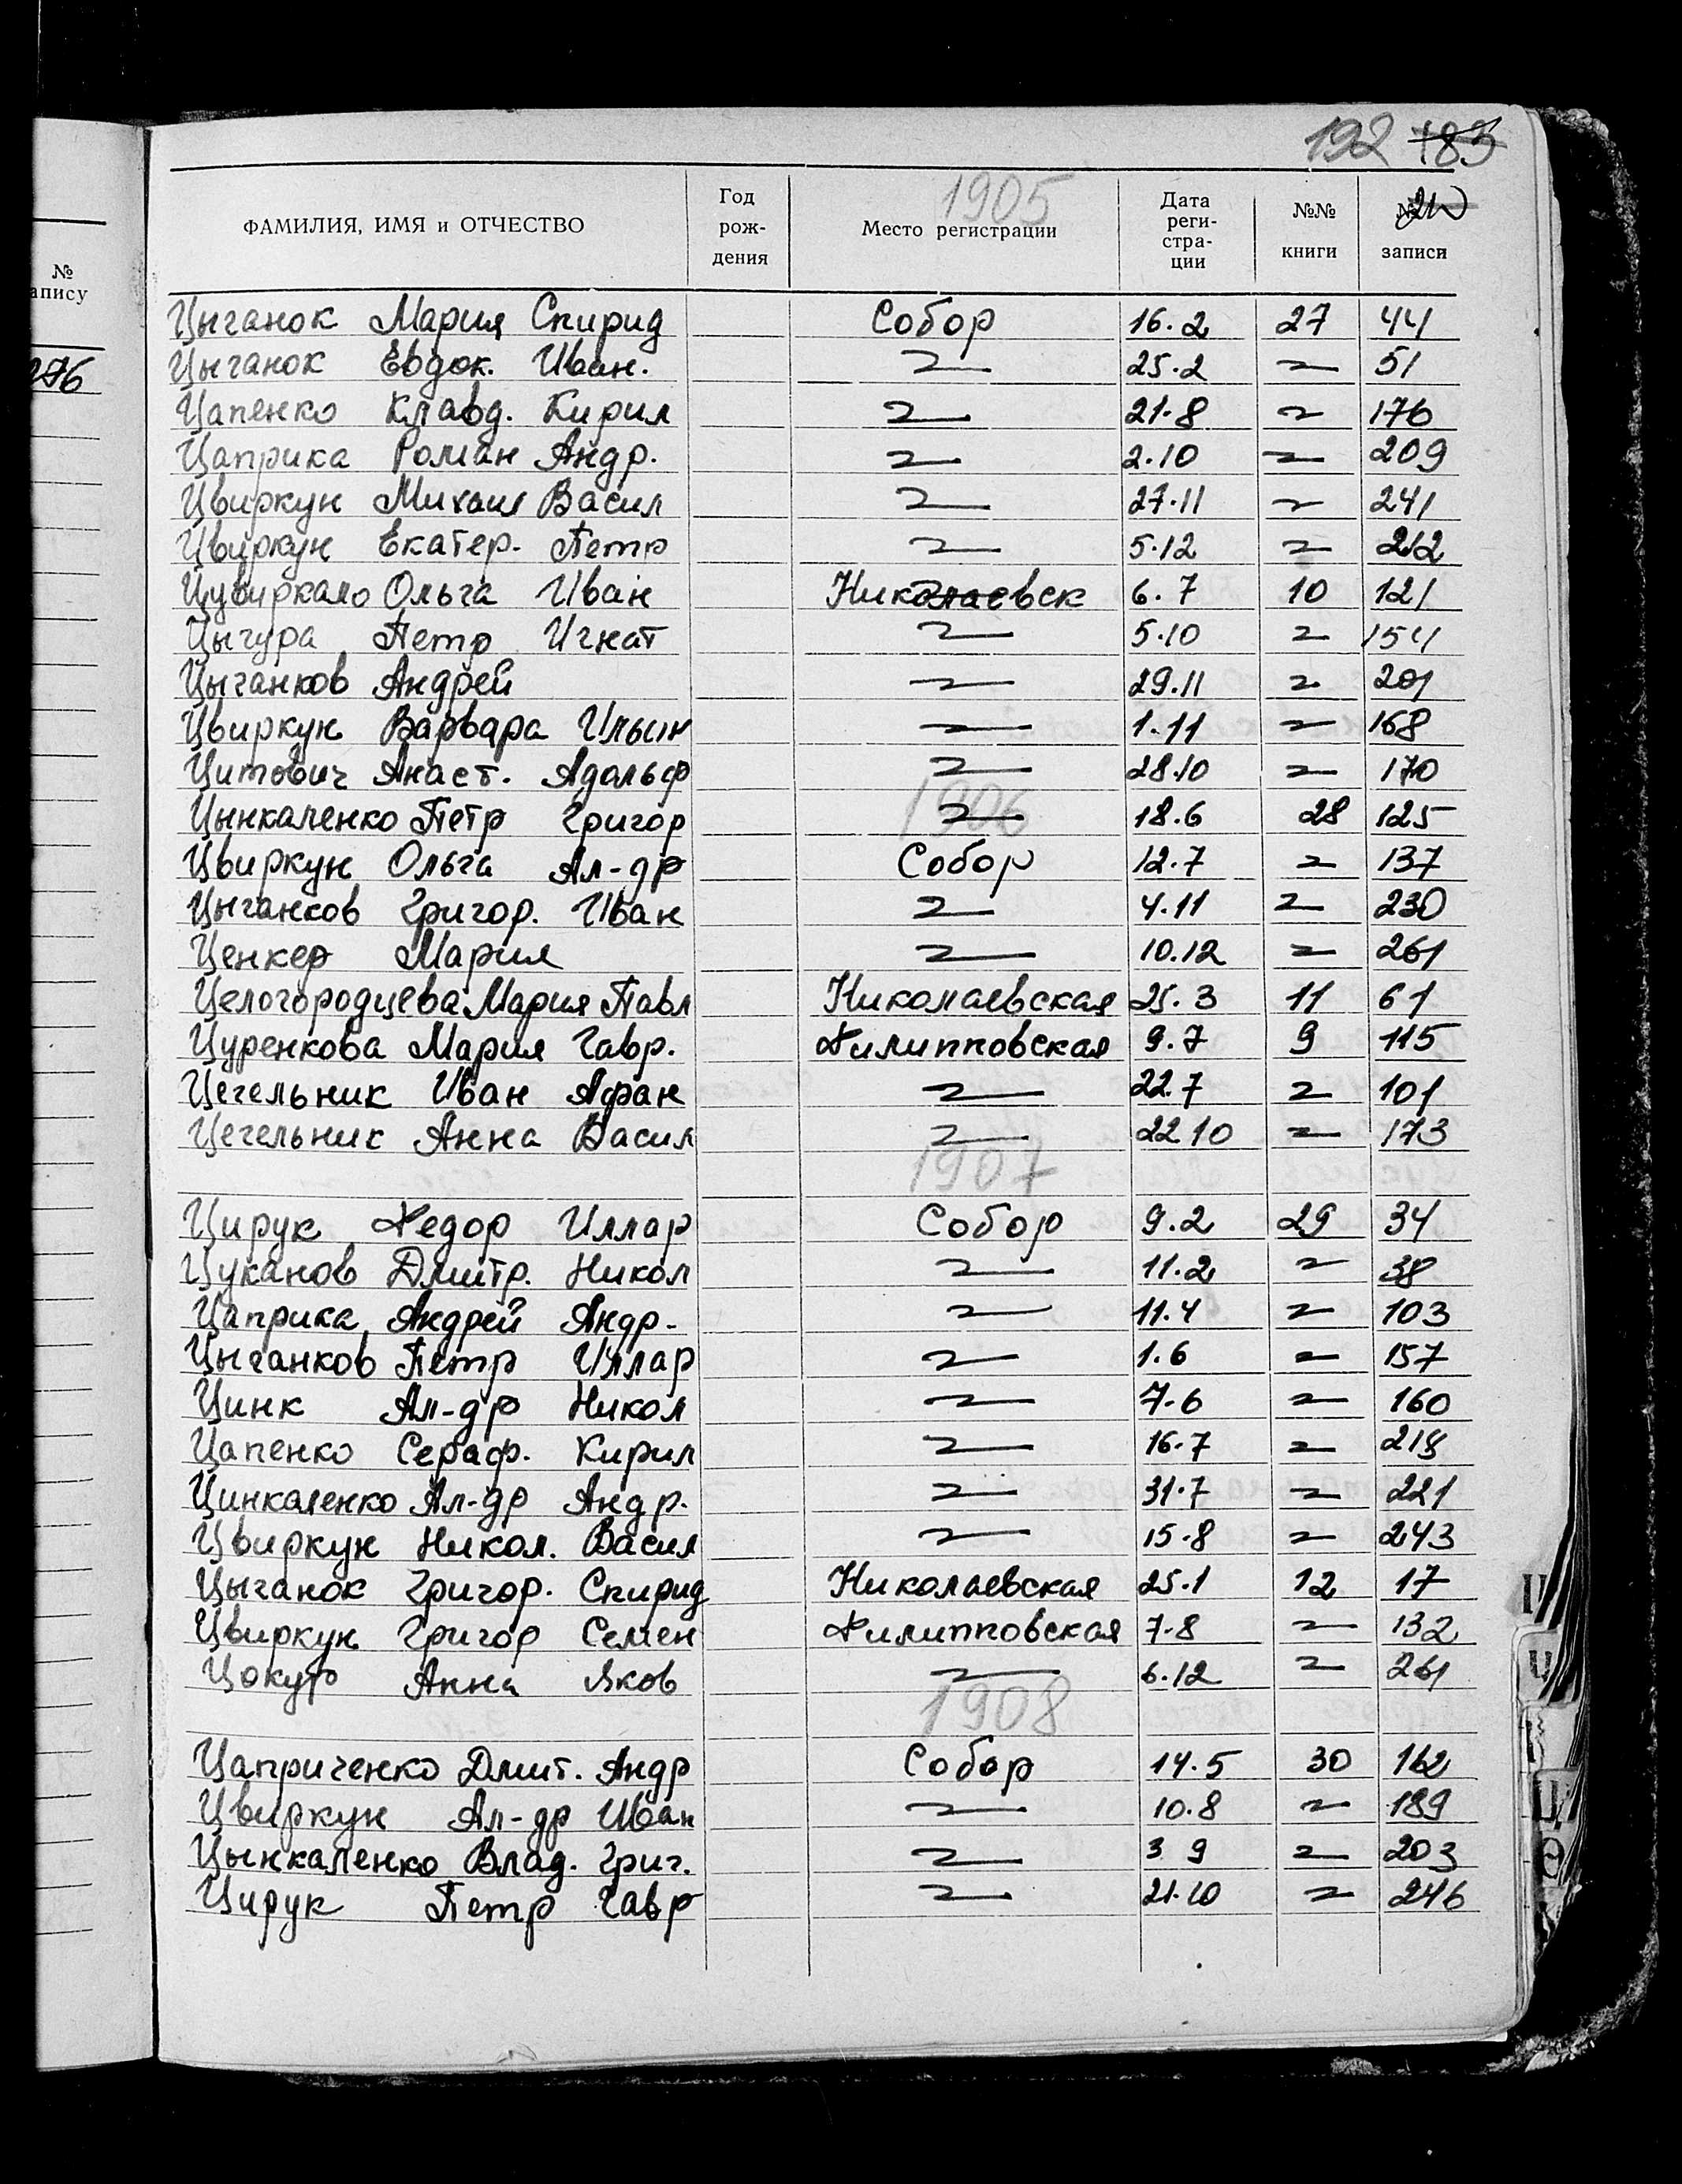 192 183
1905
ФАМИЛИЯ, ИМЯ и ОТЧЕСТВО Год рождения Место регистрации Дата регистрации №№ книги № записи
№
апису
276
Цыганок Мария Спирид Собор 16.2 27 44
Цыганок Евдок. Иван. 〃 25.2 〃 51
Цапенко Клавд. Кирил 〃 21.8 〃 176
Цаприка Роман Андр. 〃 2.10 〃 209
Цвиркун Михаил Васил 〃 27.11 〃 241
Цвиркун Екатер. Петр 〃 5.12 〃 212
Цувиркало Ольга Иван Николаевск 6.7 10 121
Цыгура Петр Игнат 〃 5.10 〃 154
Цыганков Андрей 〃 29.11 〃 201
Цвиркун Варвара Ильин 〃 1.11 〃 168
Цитович Анаст. Адольф 〃 28.10 〃 170
1906
Цынкаленко Петр Григор 〃 18.6 28 125
Цвиркун Ольга Ал-др Собор 12.7 〃 137
Цыганков Григор. Иван 〃 4.11 〃 230
Ценкер Мария 〃 10.12 〃 261
Целогородцева Мария Павл Николаевская 25.3 11 61
Цуренкова Мария Гавр. Филипповская 9.7 9 115
Цегельник Иван Афан 〃 22.7 〃 101
Цегельник Анна Васил 〃 22 10 〃 173
1907
Цирук Федор Иллар Собор 9.2 29 34
Цуканов Дмитр. Никол 〃 11.2 〃 38
Цаприка Андрей Андр. 〃 11.4 〃 103
Цыганков Петр Иллар 〃 1.6 〃 157
Цинк Ал-др Никол 〃 7.6 〃 160
Цапенко Сераф. Кирил 〃 16.7 〃 218
Цинкаленко Ал-др Андр. 〃 31.7 〃 221
Цвиркун Никол. Васил 〃 15.8 〃 243
Цыганок Григор. Спирид Николаевская 25.1 12 17
Цвиркун Григор Семен Филипповская 7.8 〃 132
Цокур Анна Яков 〃 6.12 〃 261
1908
Цаприченко Дмит. Андр Собор 14.5 30 162
Цвиркун Ал-др Иван 〃 10.8 〃 189
Цынкаленко Влад. Григ. 〃 3 9 〃 203
Цирук Петр Гавр 〃 21.10 〃 246